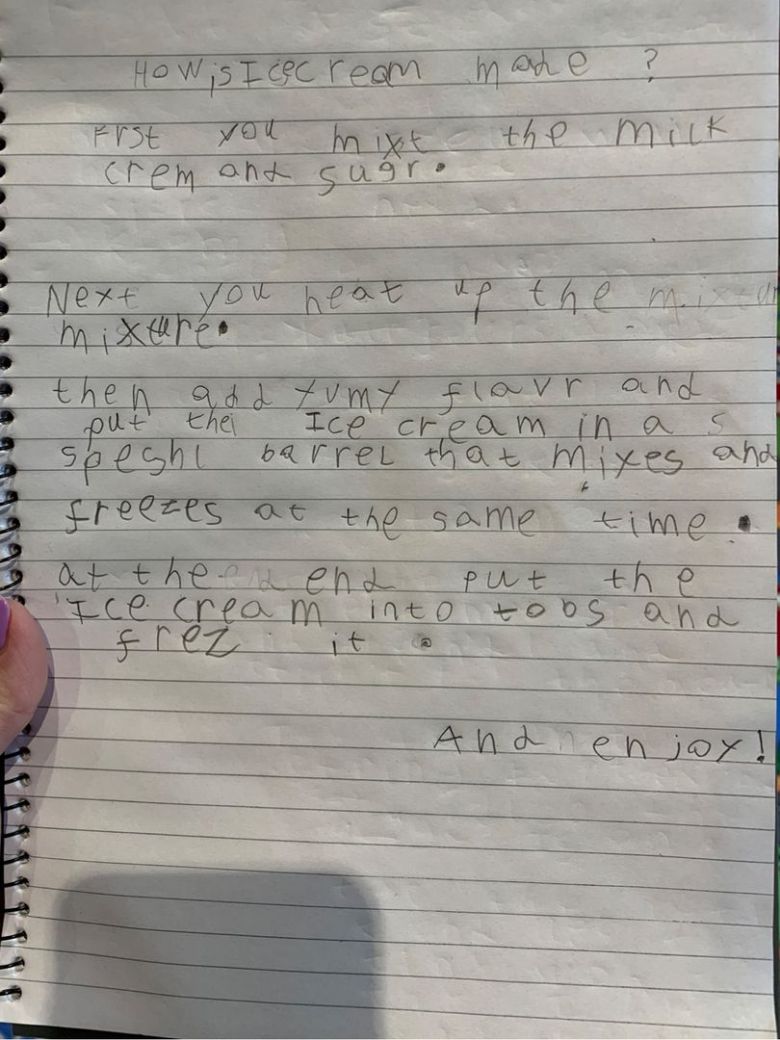 How is Icecream made ?
Frst you mixt the milk
crem and sugr.
Next you heat up the
mixture.
then add yumy flavr and
put the Ice cream in a s
speshl barrel that mixes and
freezes at the same time.
at the end put the
Ice cream into tobs and
frez it.
And enjoy!